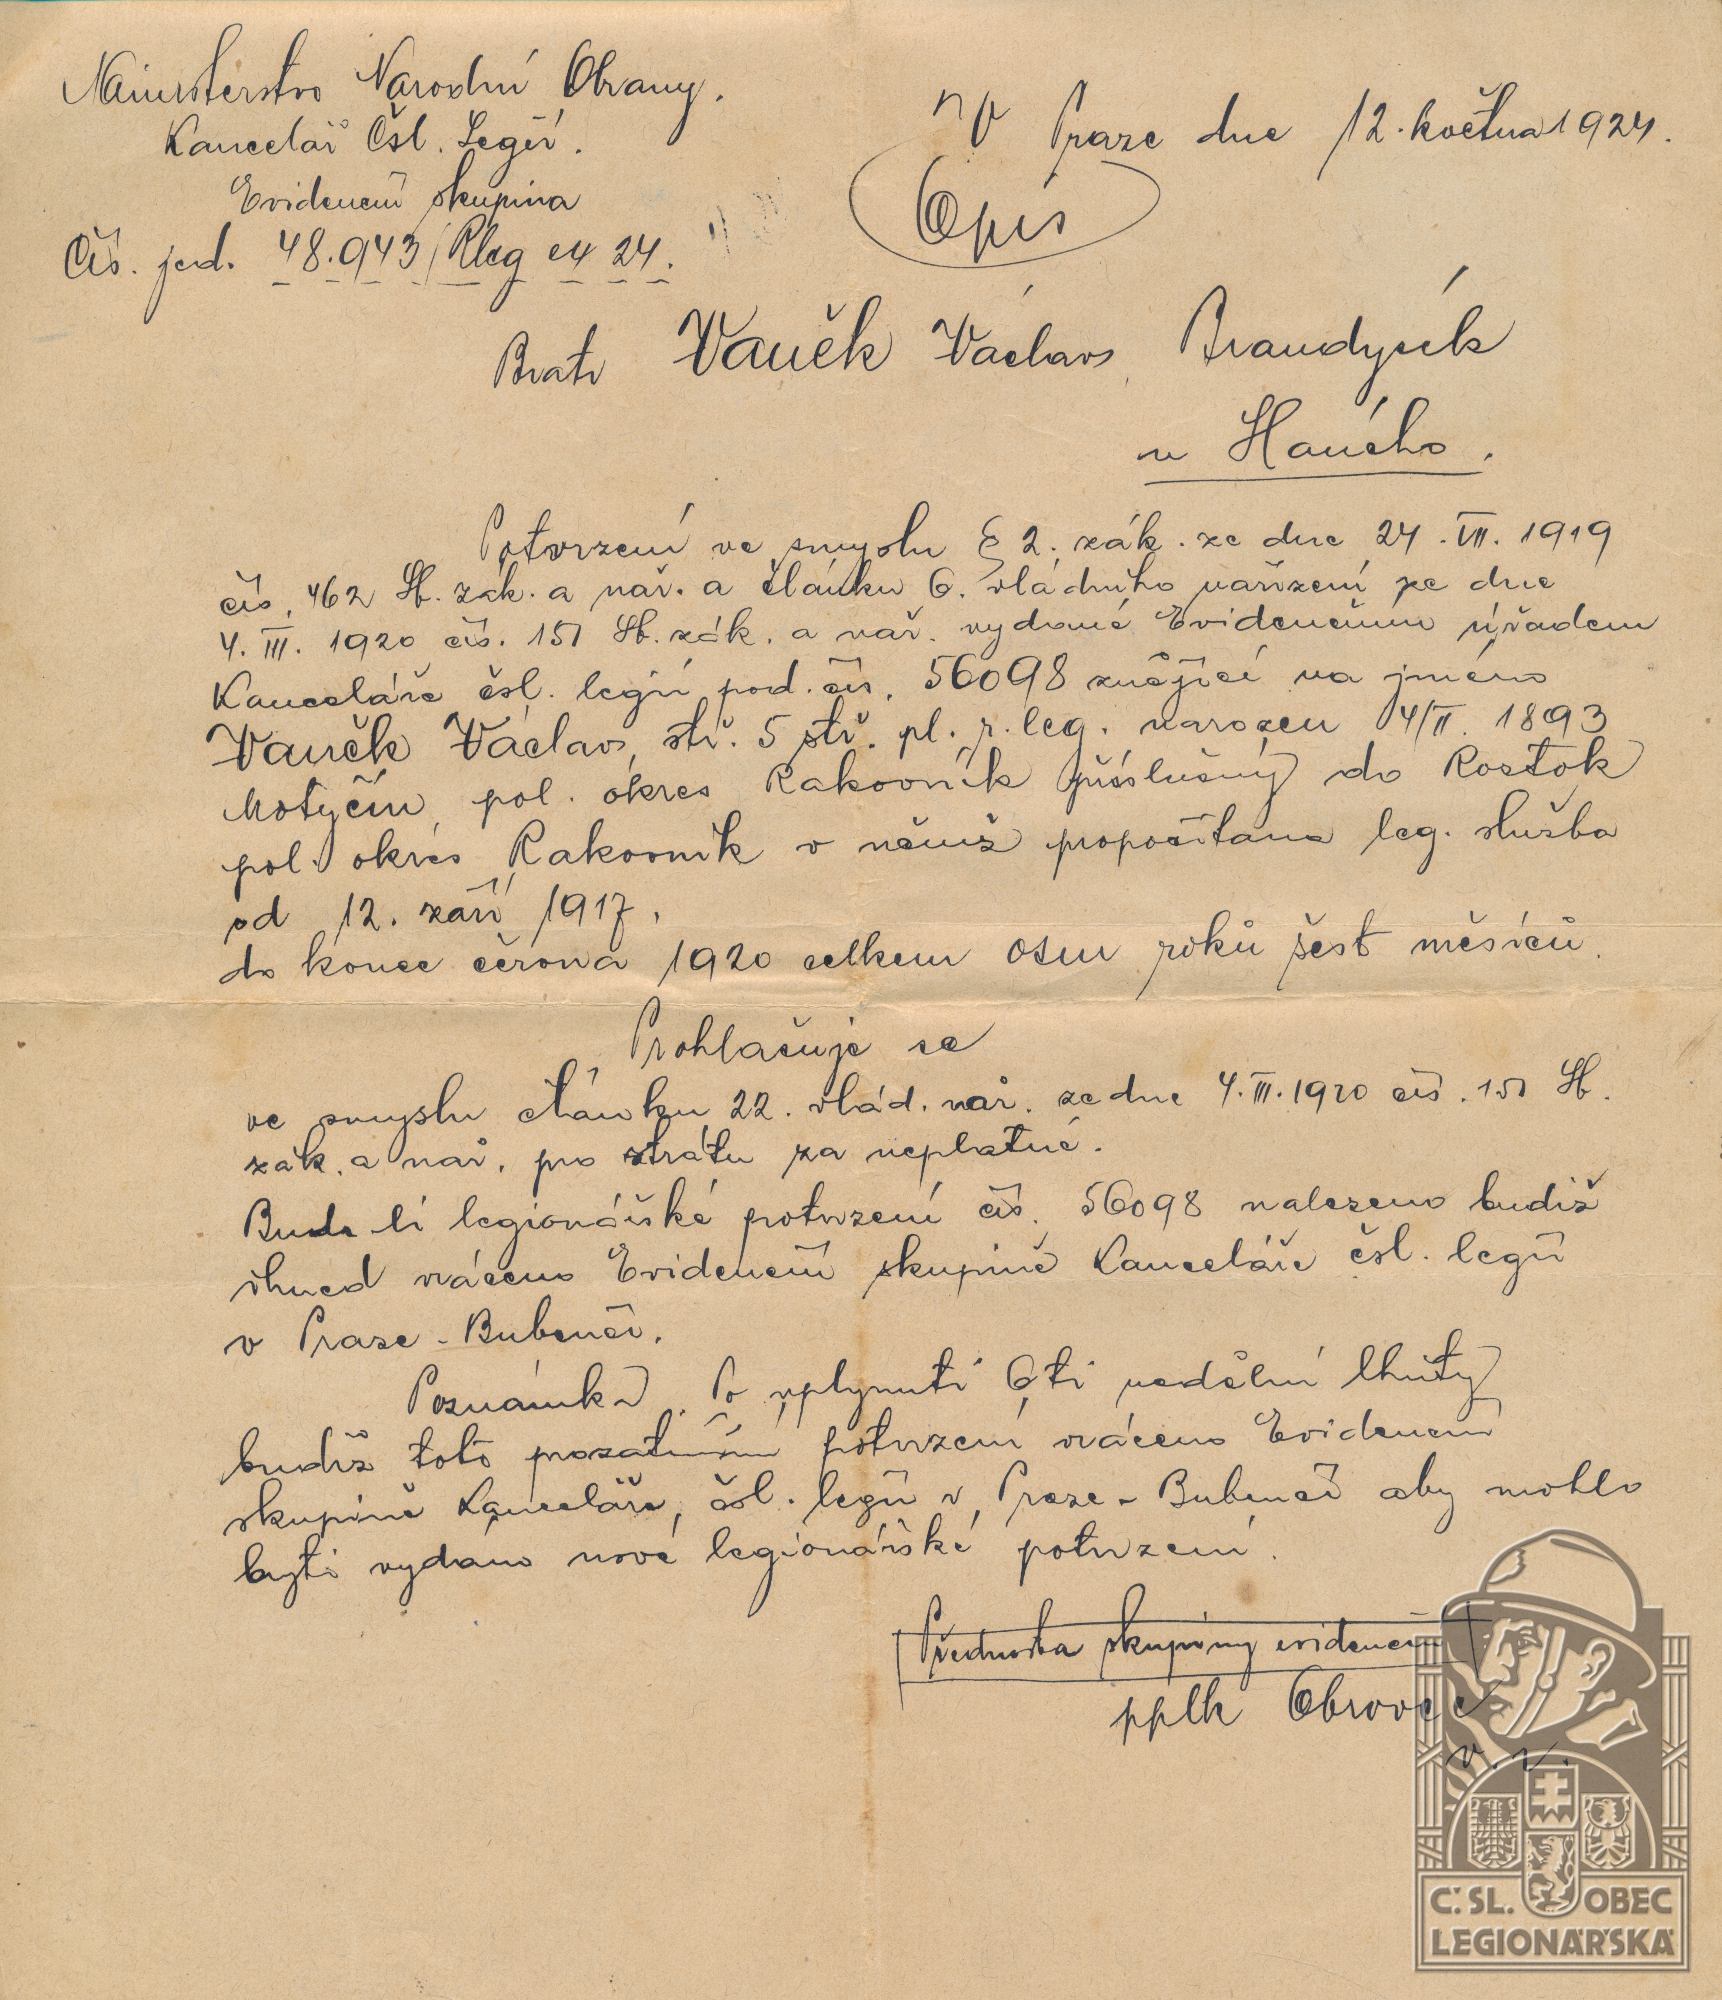 Ministerstvo Národní Obrany.
Kancelář Čsl. Legií.
Evidenční skupina
Čís. jed. 48.943/Rleg ex 24.
V Praze dne 12. května 1924.
Opis
Bratr Vaněk Václav, Brandýsek
u Slaného.
Potvrzení ve smyslu § 2. zák. ze dne 24. VII. 1919
čís. 462 Sb. zák. a nař. a článku 6. vládního nařízení ze dne
4. III. 1920 čís. 151 Sb. zák. a nař. vydané Evidenčním úřadem
Kanceláře čsl. legií pod. čís. 56098 znějící na jméno
Vaněk Václav, stř. 5 stř. pl. r. leg. narozen 4/II. 1893
Motyčín, pol. okres Rakovník příslušný do Rostok
pol. okres Rakovník v němž propočítana leg. služba
od 12. září 1917.
do konce června 1920 celkem osm roků šest měsíců.
Prohlašuje se
ve smyslu článku 22. vlád. nař. ze dne 4. III. 1920 čís. 151 Sb.
zák. a nař. pro ztrátu za neplatné.
Bude li legionářské potvrzení čís. 56098 nalezeno budiž
ihned vráceno Evidenční skupině Kanceláře čsl. legií
v Praze - Bubenči.
Poznámka. Po uplynutí 6ti nedělní lhůty
budiž toto prozatimní potvrzení vráceno Evidenční
skupině Kanceláře, čsl. legií v Praze - Bubenči aby mohlo
býti vydáno nové legionářské potvrzení.
Přednosta skupiny evidenční
pplk Obrovec
v. r.
Č. SL. OBEC
LEGIONÁŘSKÁ